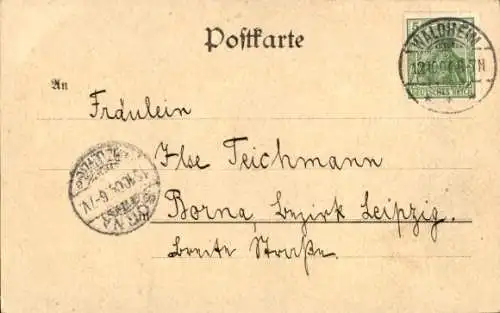 Postkarte
WALDHEIM
An
Fräulein
Ilse Teichmann
Borna, bezirk Leipzig.
breite Straße.
BORNA